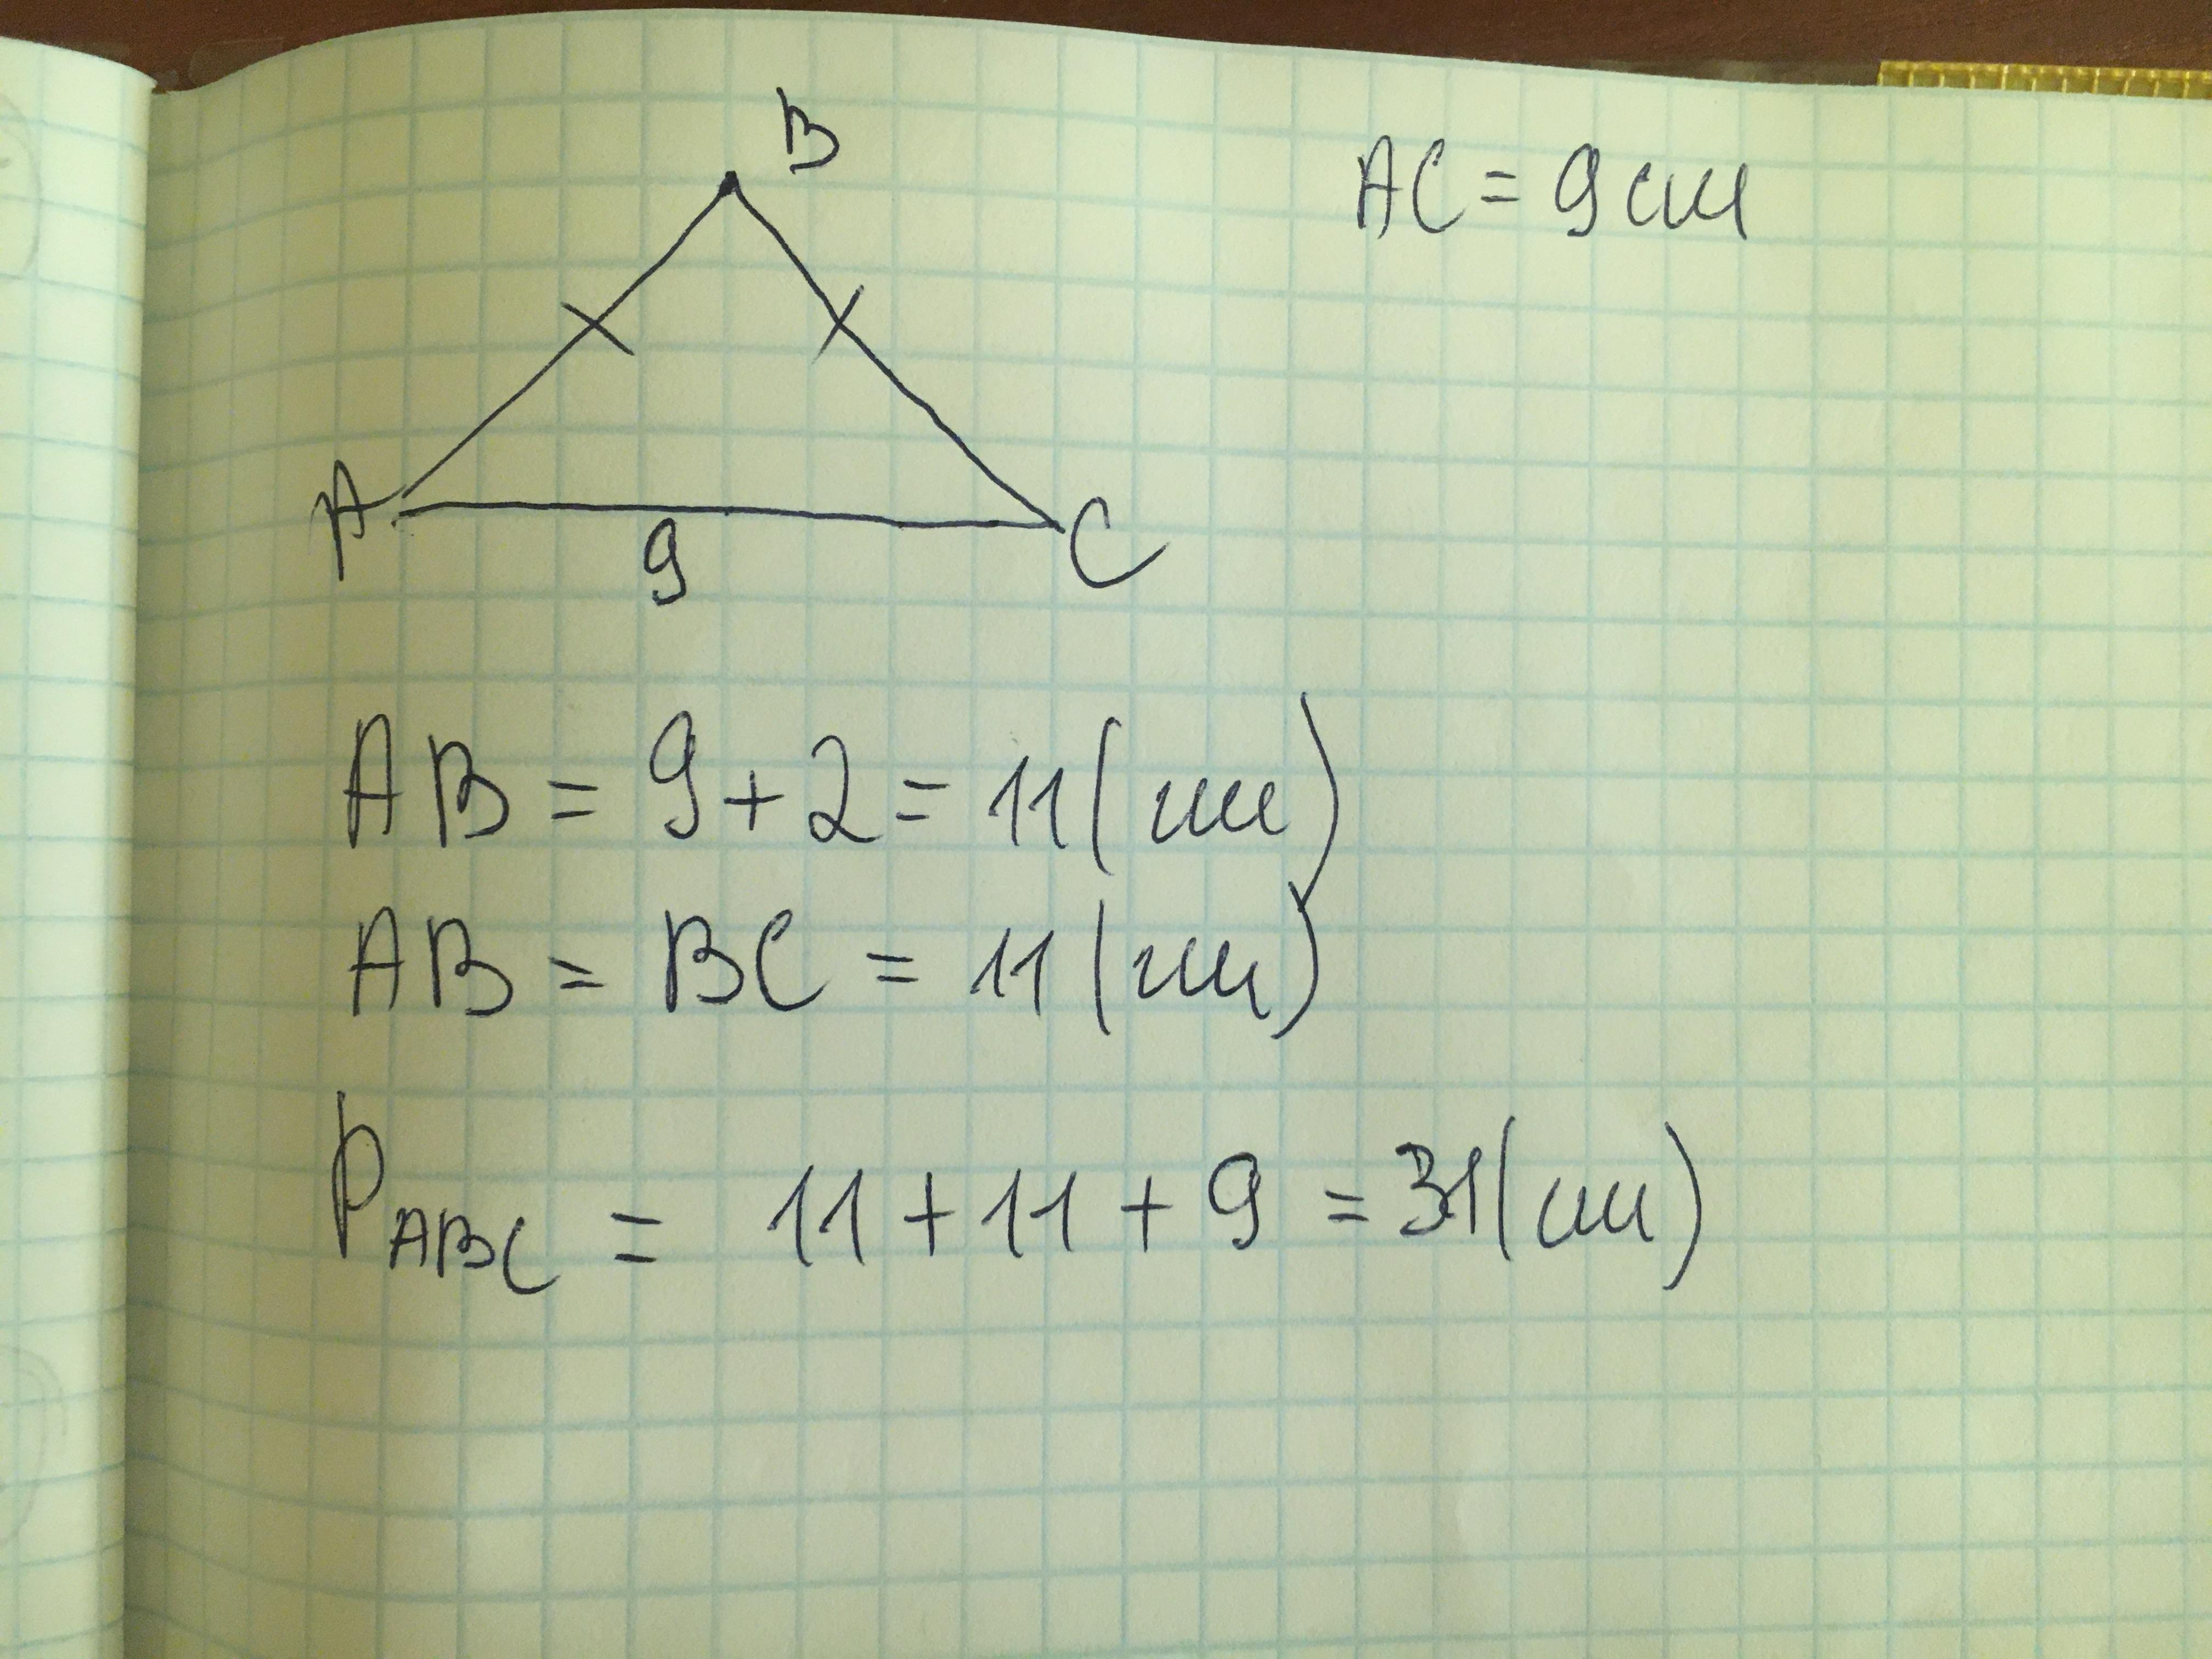 B
AC = 9 см
A
9
C
AB = 9 + 2 = 11 (см)
AB = BC = 11 (см)
P ABC = 11 + 11 + 9 = 31 (см)